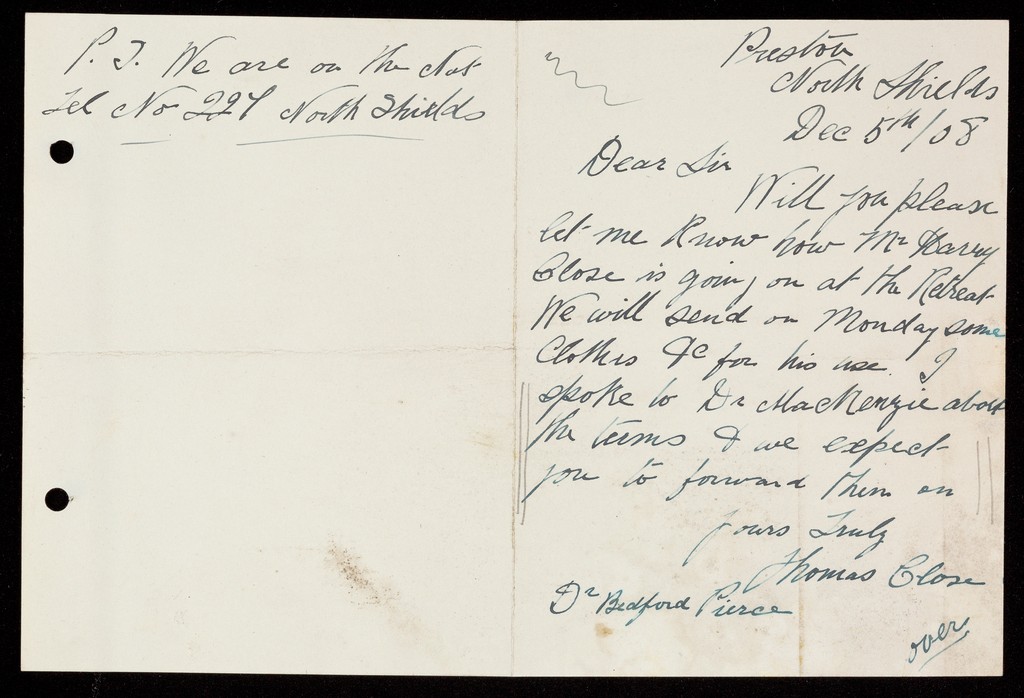 Preston
North Shields
Dec 5th/08
Dear Sir
Will you please
let me know how Mr Harry
Close is going on at the Retreat
We will send on Monday some
Clothes &c for his use. I
spoke to Dr MacKenzie about
the terms & we expect
you to forward them on
yours Truly
Thomas Close
Dr Bedford Pierce
over
We are on the Nat
Tel No 227 North Shields